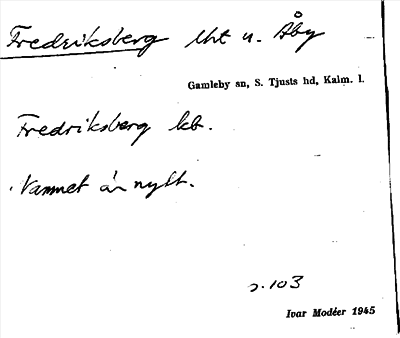 Fredriksberg lht u. Åby
Gamleby sn, S. Tjusts hd, Kalm. l.
Fredriksberg lb.
Namnet är nytt.
s. 103
Ivar Modéer 1945